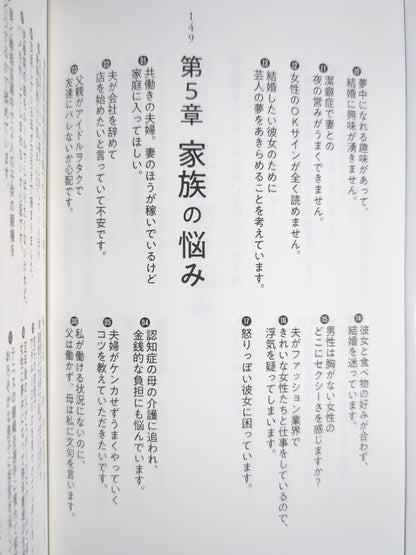 10 夢中になれる趣味があって、
結婚に興味が湧きません。
11 潔癖症で妻との
夜の営みがうまくできません。
12 女性のOKサインが全く読めません。
13 結婚したい彼女のために
芸人の夢をあきらめることを考えています。
14 彼女と食べ物の好みが合わず、
結婚を迷っています。
15 男性は胸がない女性の
どこにセクシーさを感じますか？
16 夫がファッション業界で
きれいな女性たちと仕事をしているので、
浮気を疑ってしまいます。
17 怒りっぽい彼女に困っています。
149
第5章 家族の悩み
01 共働きの夫婦。妻のほうが稼いでいるけど
家庭に入ってほしい。
02 夫が会社を辞めて
店を始めたいと言っていて不安です。
03 父親がアイドルヲタクで
友達にバレないか心配です。
04 認知症の母の介護に追われ、
金銭的な負担にも悩んでいます。
05 夫婦がケンカせずうまくやっていく
コツを教えていただきたいです。
06 私が働ける状況にないのに、
父は働かず、母は私に文句を言います。